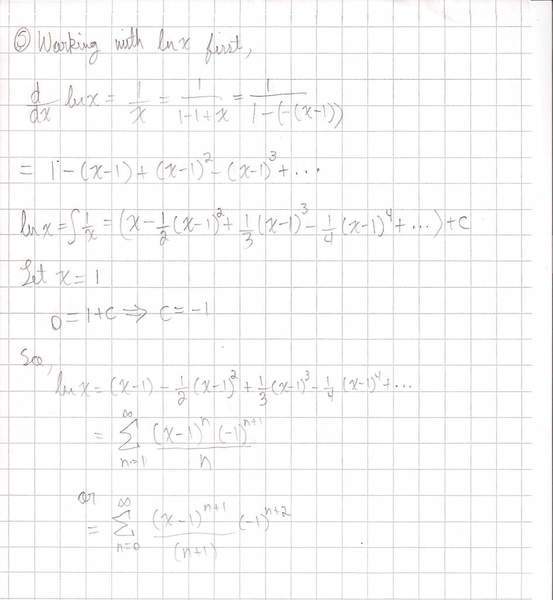 © Working with ln x first,
d/dx ln x = 1/x = 1/(1-1+x) = 1/(1-(-(x-1)))
= 1 - (x-1) + (x-1)² - (x-1)³ + ...
ln x = ∫ 1/x = (x - 1/2 (x-1)² + 1/3 (x-1)³ - 1/4 (x-1)⁴ + ...) + C
Let x = 1
0 = 1 + C ⇒ C = -1
So,
ln x = (x-1) - 1/2 (x-1)² + 1/3 (x-1)³ - 1/4 (x-1)⁴ + ...
= ∞ Σ n=1 (x-1)ⁿ (-1)ⁿ⁺¹ / n
or
= ∞ Σ n=0 (x-1)ⁿ⁺¹ / (n+1) (-1)ⁿ⁺²